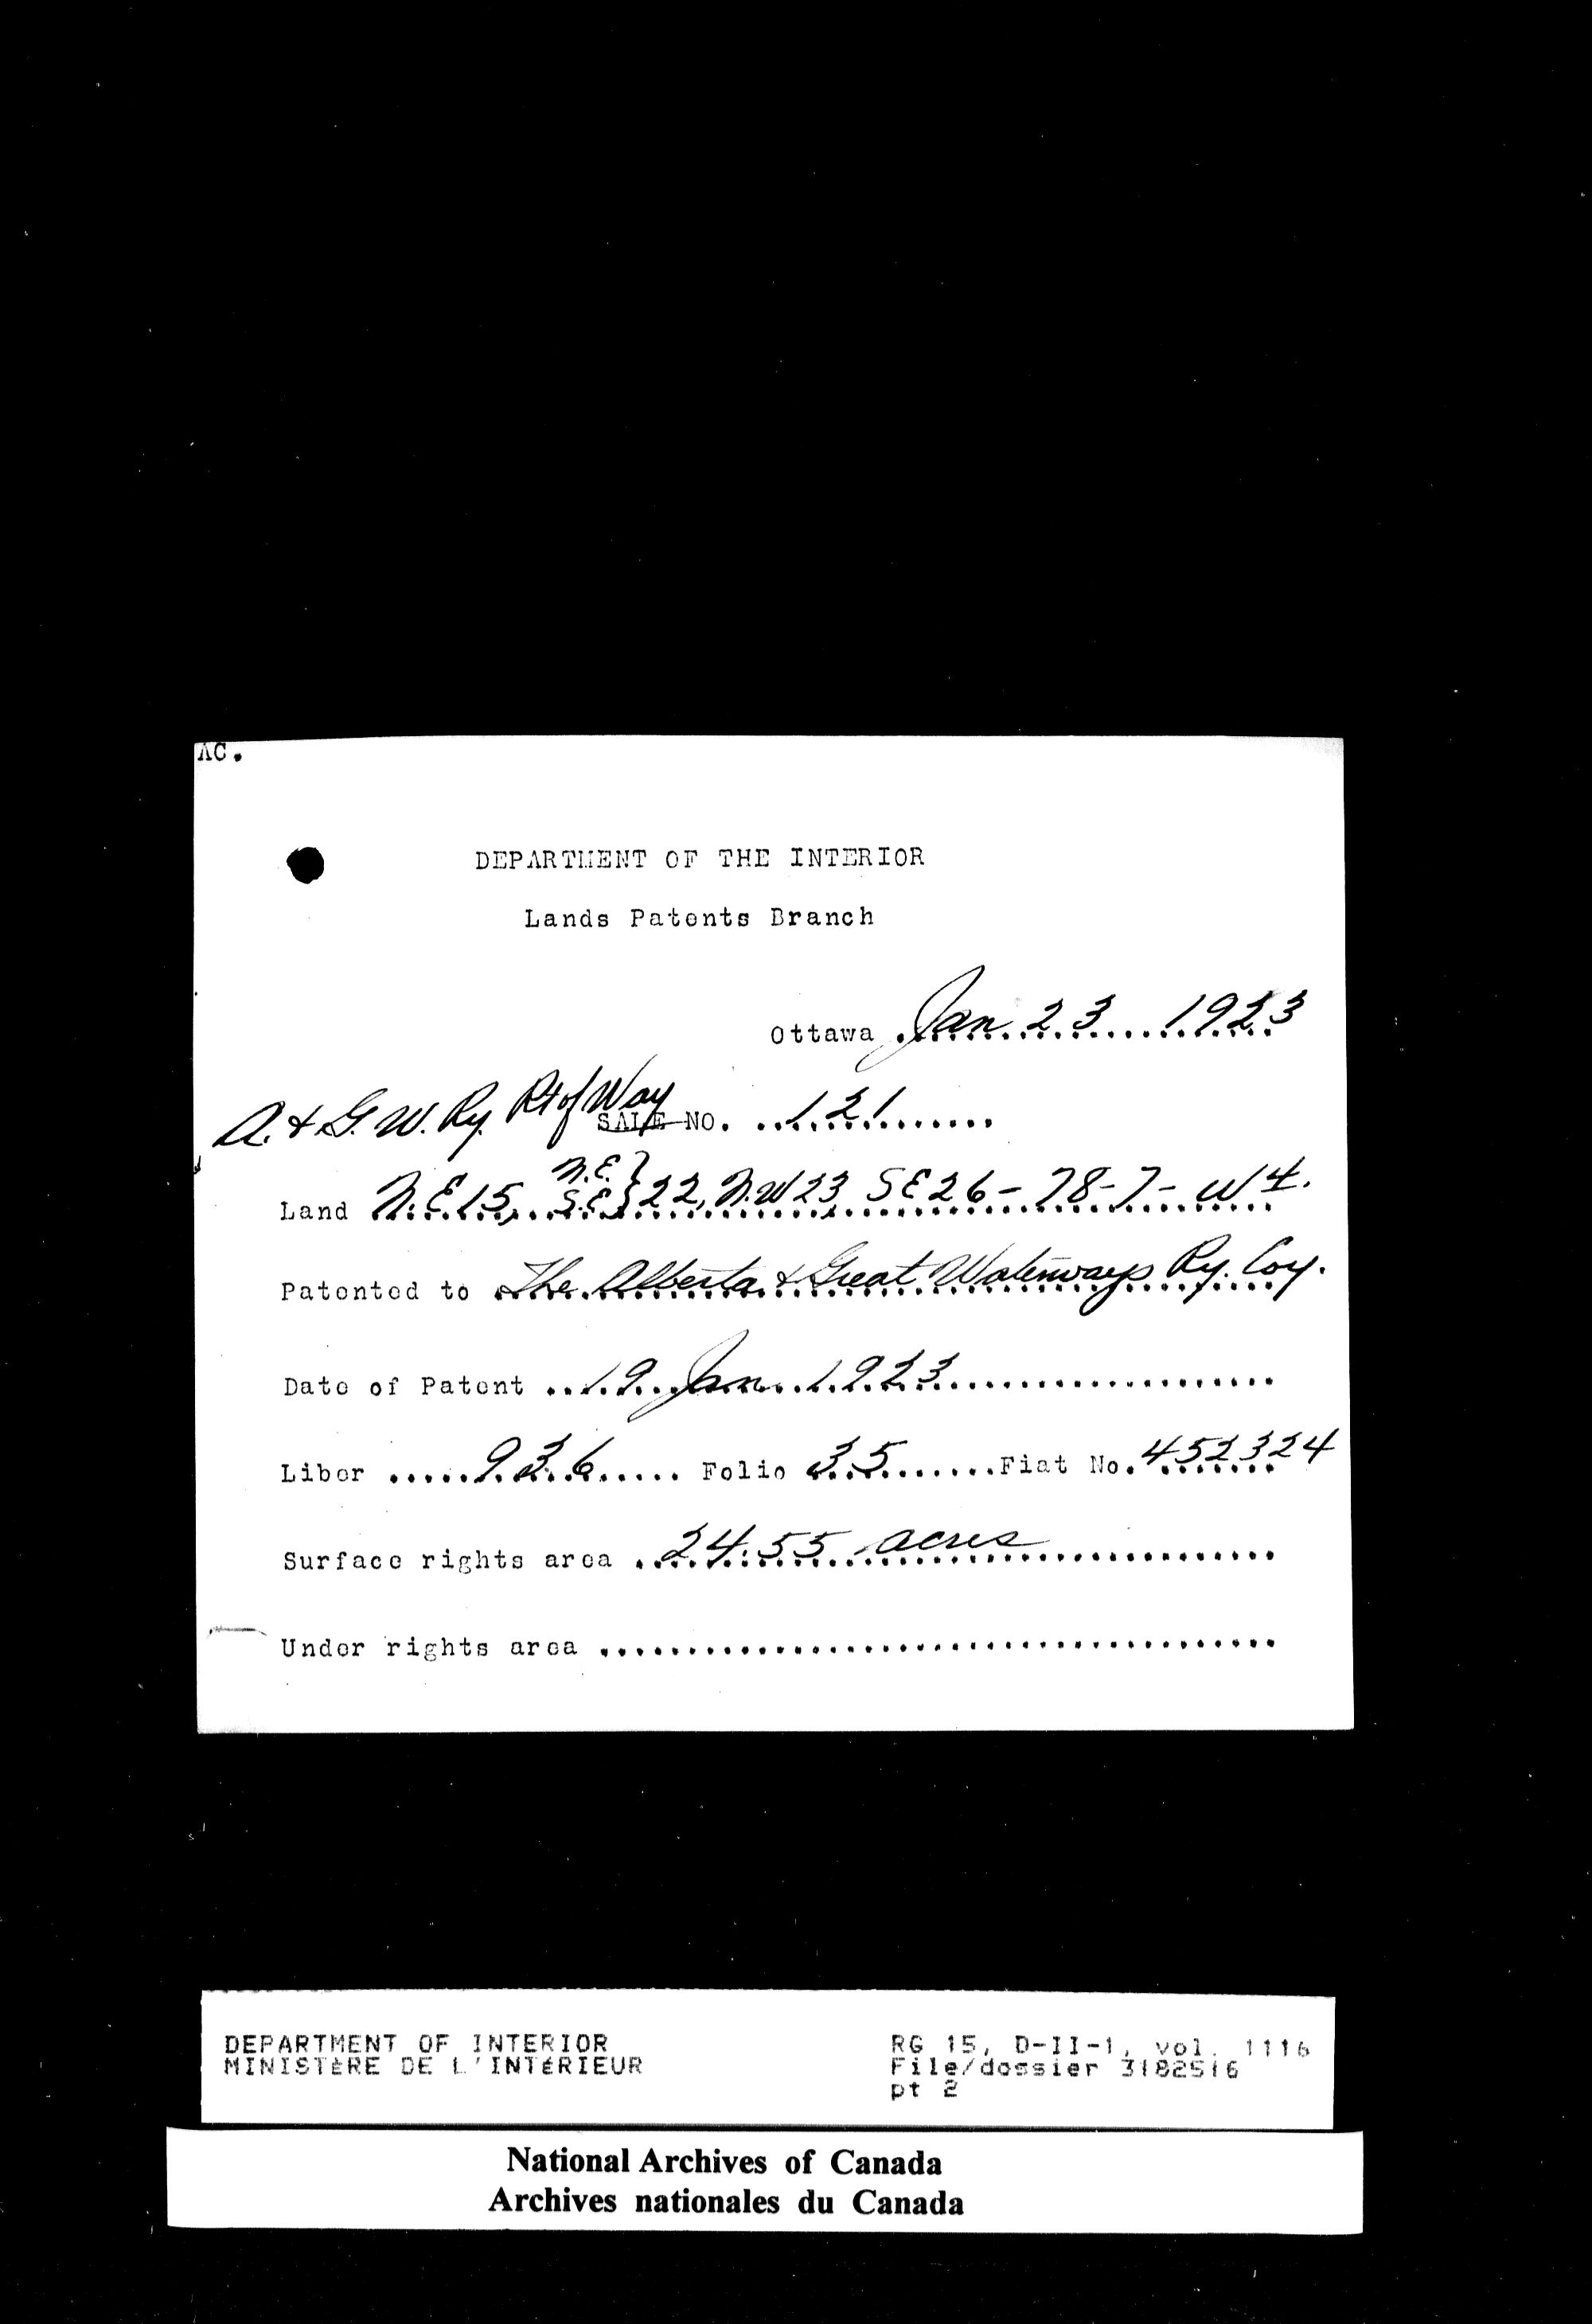 AC.
DEPARTMENT OF THE INTERIOR
Lands Patents Branch
Ottawa Jan 23 1923
A. & G. W. Ry. Rt of Way SALE NO. 121
N.E.
Land N.E 15, S.E } 22, N.W 23, SE 26 - 78 - 7 - W 4.
Patented to The Alberta & Great Waterways Ry. Coy.
Date of Patent 19 Jan 1923
Liber 936 Folio 35 Fiat No. 452324
Surface rights area 24.55 acres
Under rights area
DEPARTMENT OF INTERIOR
MINISTÈRE DE L'INTÉRIEUR
RG 15, D-II-1, vol. 1116
File/dossier 3182516
pt 2
National Archives of Canada
Archives nationales du Canada